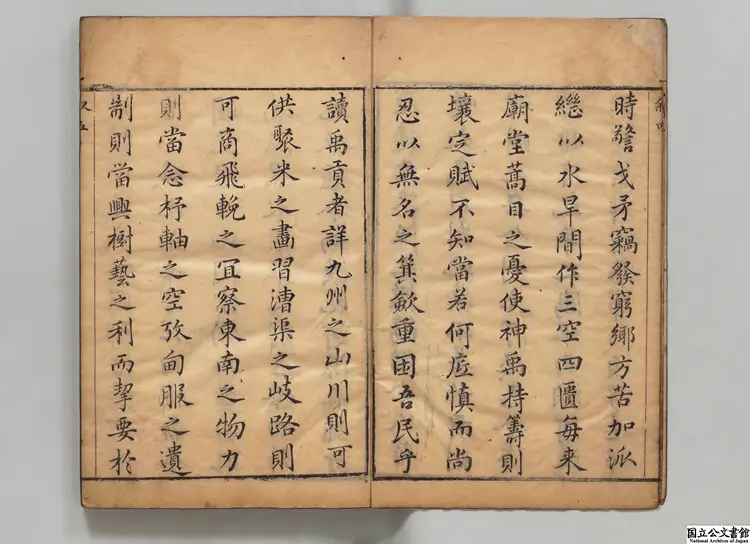 時警戈矛竊發窮鄉方苦加派
繼以水旱間作三空四匱每來
廟堂蒿目之憂使神禹持籌則
壤定賦不知當若何底慎而尚
忍以無名之箕歛重困吾民乎
讀禹貢者詳九州之山川則可
供聚米之畫習漕渠之岐路則
可商飛輓之冝察東南之物力
則當念杼軸之空攷甸服之遺
制則當興樹藝之利而挈要於
国立公文書館
National Archives of Japan